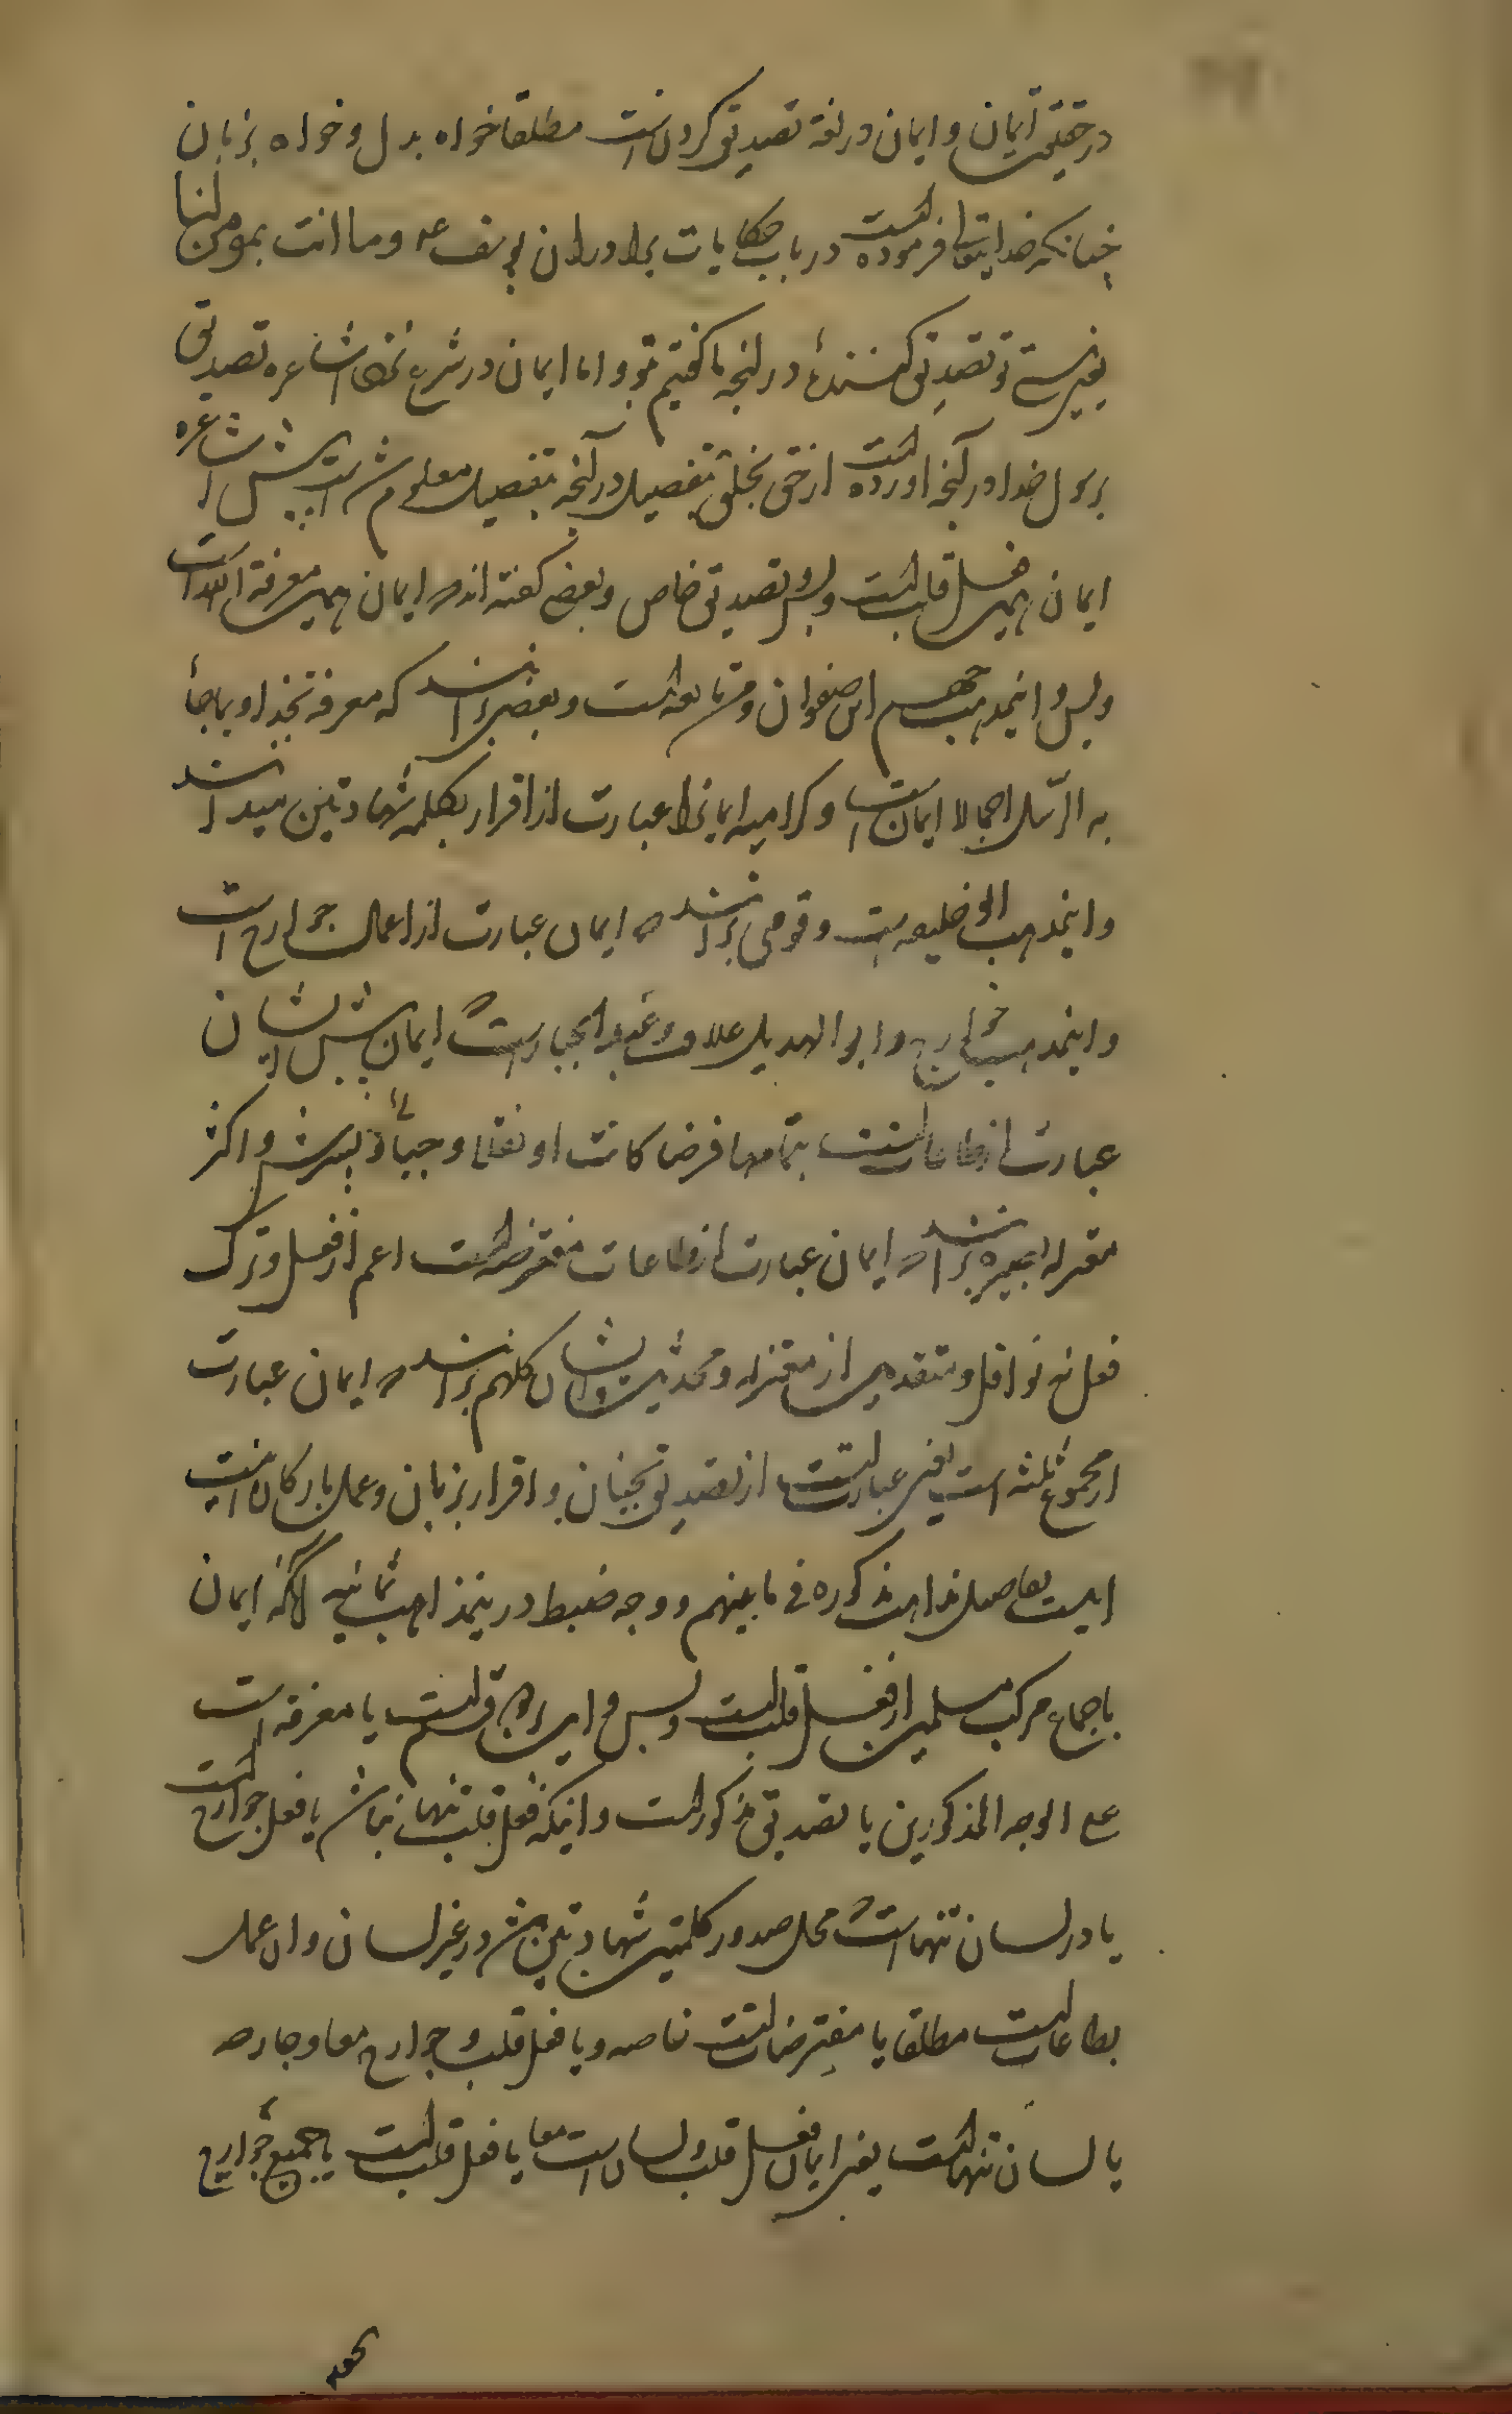 در حقیقت ایمان و ایمان در لغة تصدیق کردن است مطلقا خواه بدل و خواه بزبان
چنانکه خدایتعالی فرموده است در باب حکایات برادران یوسف ع و ما انت بمومن لنا
یعنی نیستی تو تصدیق کننده در انچه ما گفتیم بتو و اما ایمان در شرع نزد اشاعره تصدیق
برسول خدا در آنچه اورده است از حق بخلق تفصیلا در آنچه بتفصیل معلوم شده است پیش اشاعره
ایمان همین فعل قلب است و بس و تصدیق خاص و بعضی گفته اند که ایمان همین معرفة الله است
و بس و اینمذهب جهم ابن صفوان و متابعه است و بعضی برانند که معرفة بخدا و بما جاء
به الرسل اجمالا ایمان است و کرامیه ایمانرا عبارت از اقرار بکلمه شهادتین میدانند
و اینمذهب خلیعه است و قومی برانند که ایمان عبارت از اعمال جوارح است
و اینمذهب خوارج و ابو الهدیل علاف و عبد الجبار است که ایمان پیش ایشان
عبارت از طاعات است بتمامها فرضا کانت او نفلا و جبائی و پسرش و اکثر
معتزله بصره برانند که ایمان عبارت از طاعات مفترضه است اعم از فعل و ترک
فعل نه نوافل و متقدمین از معتزله و محدثین و ایشان کلهم برانند که ایمان عبارت
از مجموع ثلثه است یعنی عبارتست از تصدیق بجنان و اقرار بزبان و عمل بارکان اینست
اینست تفاصیل مذاهب مذکوره فی ما بینهم و وجه ضبط در اینمذاهب ثمانیه آنکه ایمان
باجماع مرکب مسلمین از فعل قلب است و بس و این بر دو قسم است یا معرفة است
علی الوجه المذکورین یا تصدیق مذکور است و اینکه فعل قلب تنها نباشد یا فعل جوارح است
یا در لسان تنها است که محل صدور کلمتین شهادتین باشد در غیر لسان و ان عمل
بطاعات است مطلقا یا مفترضات است خاصه و یا فعل قلب و جوارح معا و جارحه
یا لسان تنها است یعنی ایمان فعل قلب و لسان است معا یا فعل قلب است با جمیع جوارح